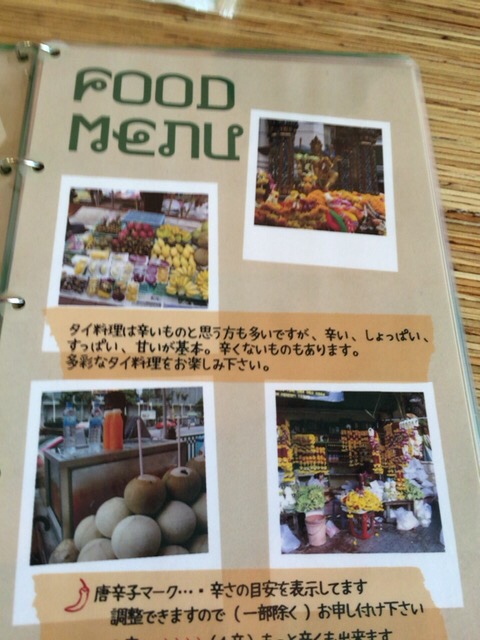 FOOD
MENU
タイ料理は辛いものと思う方も多いですが、辛い、しょっぱい、
すっぱい、甘いが基本。辛くないものもあります。
多彩なタイ料理をお楽しみ下さい。
唐辛子マーク…・辛さの目安を表示してます
調整できますので（一部除く）お申し付け下さい
もっと辛くも出来ます